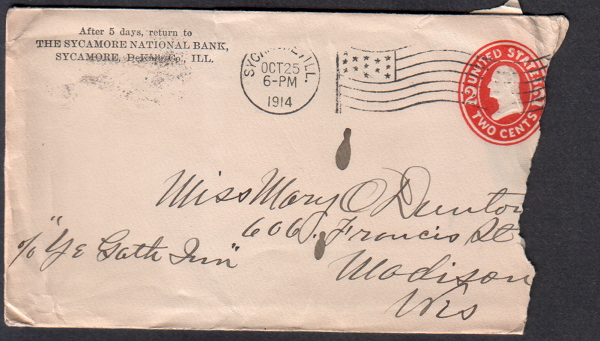 After 5 days, return to
THE SYCAMORE NATIONAL BANK,
SYCAMORE, DeKalb Co., ILL.
SYCAMORE, ILL.
OCT 25
6-PM
1914
UNITED STATES
2
TWO CENTS
Miss Mary O Dunton
606 N. Francis St
c/o "Ye Gath Inn"
Madison
Wis